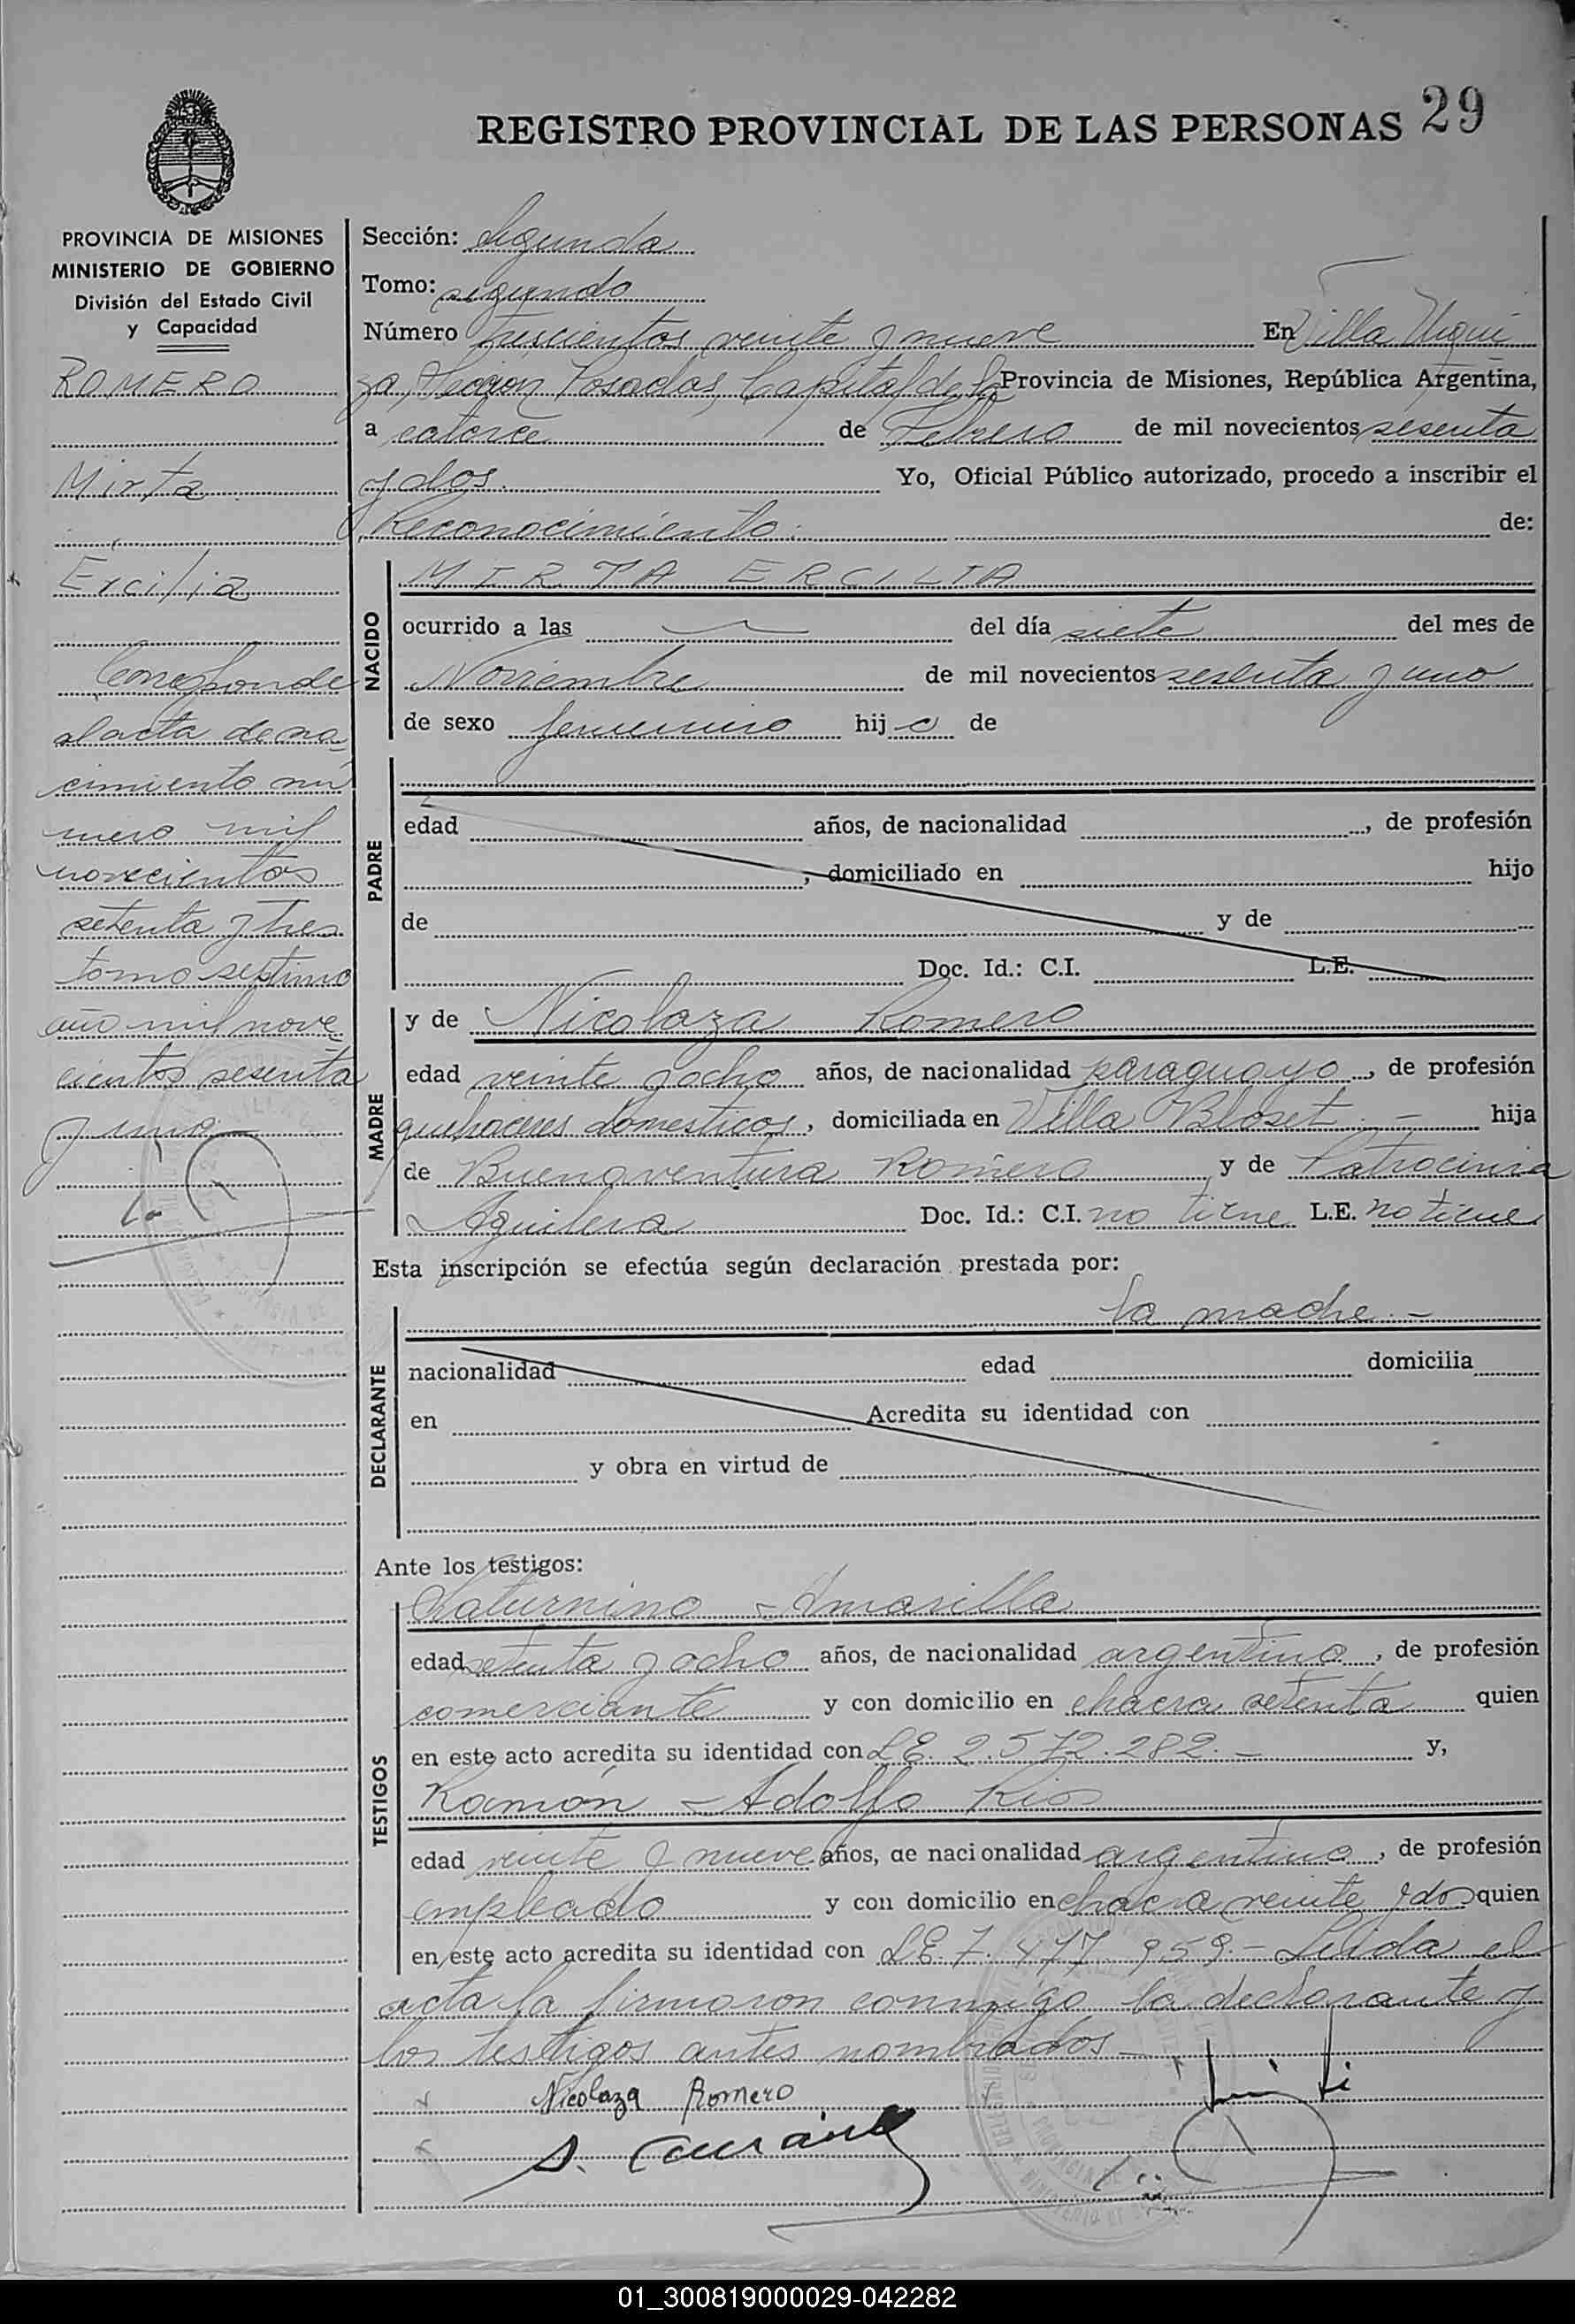 REGISTRO PROVINCIAL DE LAS PERSONAS 29
PROVINCIA DE MISIONES
MINISTERIO DE GOBIERNO
División del Estado Civil
y Capacidad
ROMERO
Mirta
Ercilia
Corresponde
al acta de na
cimiento nú
mero mil
novecientos
setenta y tres
tomo septimo
año mil nove
cientos sesenta
y uno
Sección: Segunda
Tomo: segundo
Número trescientos veinte y nueve En Villa Urqui
za, Seccion Posadas, Capital de la Provincia de Misiones, República Argentina,
a catorce de Febrero de mil novecientos sesenta
y dos. Yo, Oficial Público autorizado, procedo a inscribir el
Reconocimiento. de:
NACIDO
MIRTA ERCILIA
ocurrido a las del día siete del mes de
Noviembre de mil novecientos sesenta y uno
de sexo femenino hij a de
PADRE
edad años, de nacionalidad , de profesión
, domiciliado en hijo
de y de
Doc. Id.: C.I. L.E.
MADRE
y de Nicolaza Romero
edad veinte y ocho años, de nacionalidad paraguayo, de profesión
quehaceres domesticos, domiciliada en Villa Bloset.- hija
de Buenaventura Romero y de Patrocinia
Aguilera Doc. Id.: C.I. no tiene L.E. no tiene
Esta inscripción se efectúa según declaración prestada por:
la madre.-
DECLARANTE
nacionalidad edad domicilia
en Acredita su identidad con
y obra en virtud de
Ante los testigos:
TESTIGOS
Saturnino Amarilla
edad setenta y ocho años, de nacionalidad argentino, de profesión
comerciante y con domicilio en chacra setenta quien
en este acto acredita su identidad con L.E. 2.572.282.- y,
Ramón Adolfo Rios
edad veinte y nueve años, de nacionalidad argentino, de profesión
empleado y con domicilio en chacra veinte y dos quien
en este acto acredita su identidad con L.E. 7.477.959.- Leida el
acta la firmaron conmigo la declarante y
los testigos antes nombrados.-
Nicolaza Romero
01_300819000029-042282